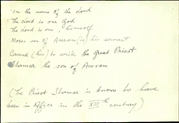 In the name of the Lord
The Lord is our God
The Lord is one himself
Moses son of Amram is his servant
Caused (his) to write the Great Priest
Shamer the son of Amram
(The Priest Shamer is known to have
been in office in the XIIth century)